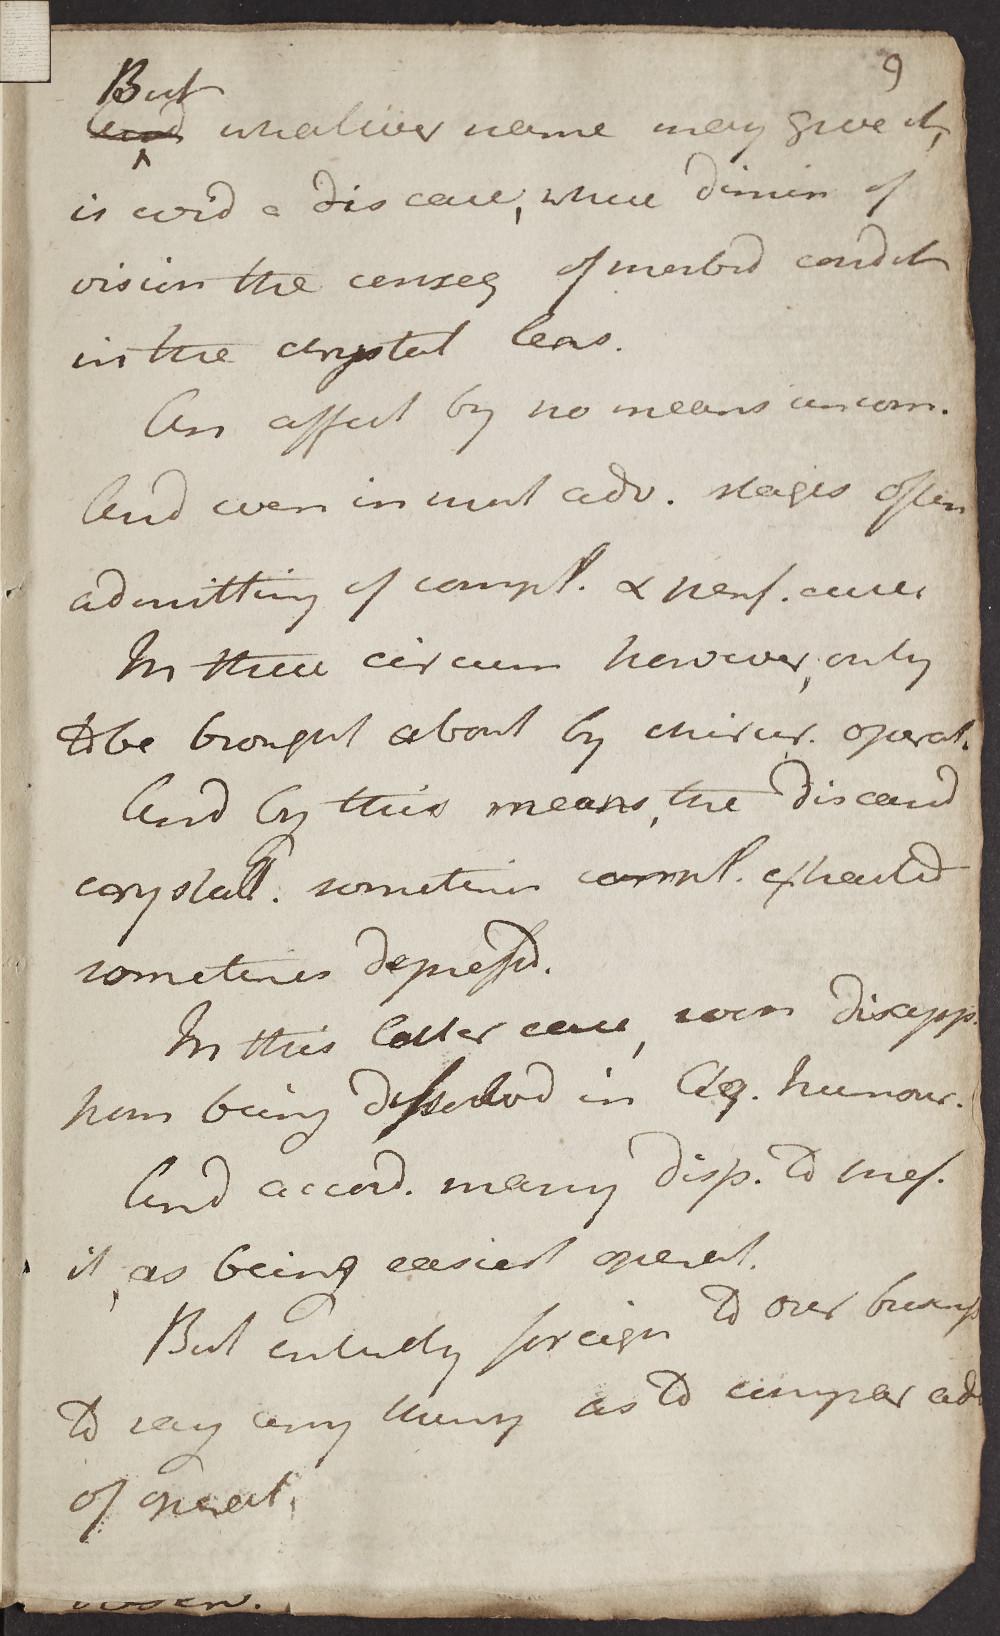 9
But
And whatever name may give it,
is consid a disease, where dimin of
vision the conseq of morbid condit
in the crystal lens.
An affect by no means uncom.
And even in most adv. stages often
admitting of compl. & perf. cure.
In these circum however, only
to be brought about by chirur. operat.
And by this means, the diseased
crystall. sometimes compl. extracted
sometimes depressd.
In this latter case, soon disapp.
from being dissolvd in Aq. humour.
And accord. many disp. to pref.
it, as being easiest operat.
But entirely foreign to our busins
to say any thing as to compar adv
of operat.